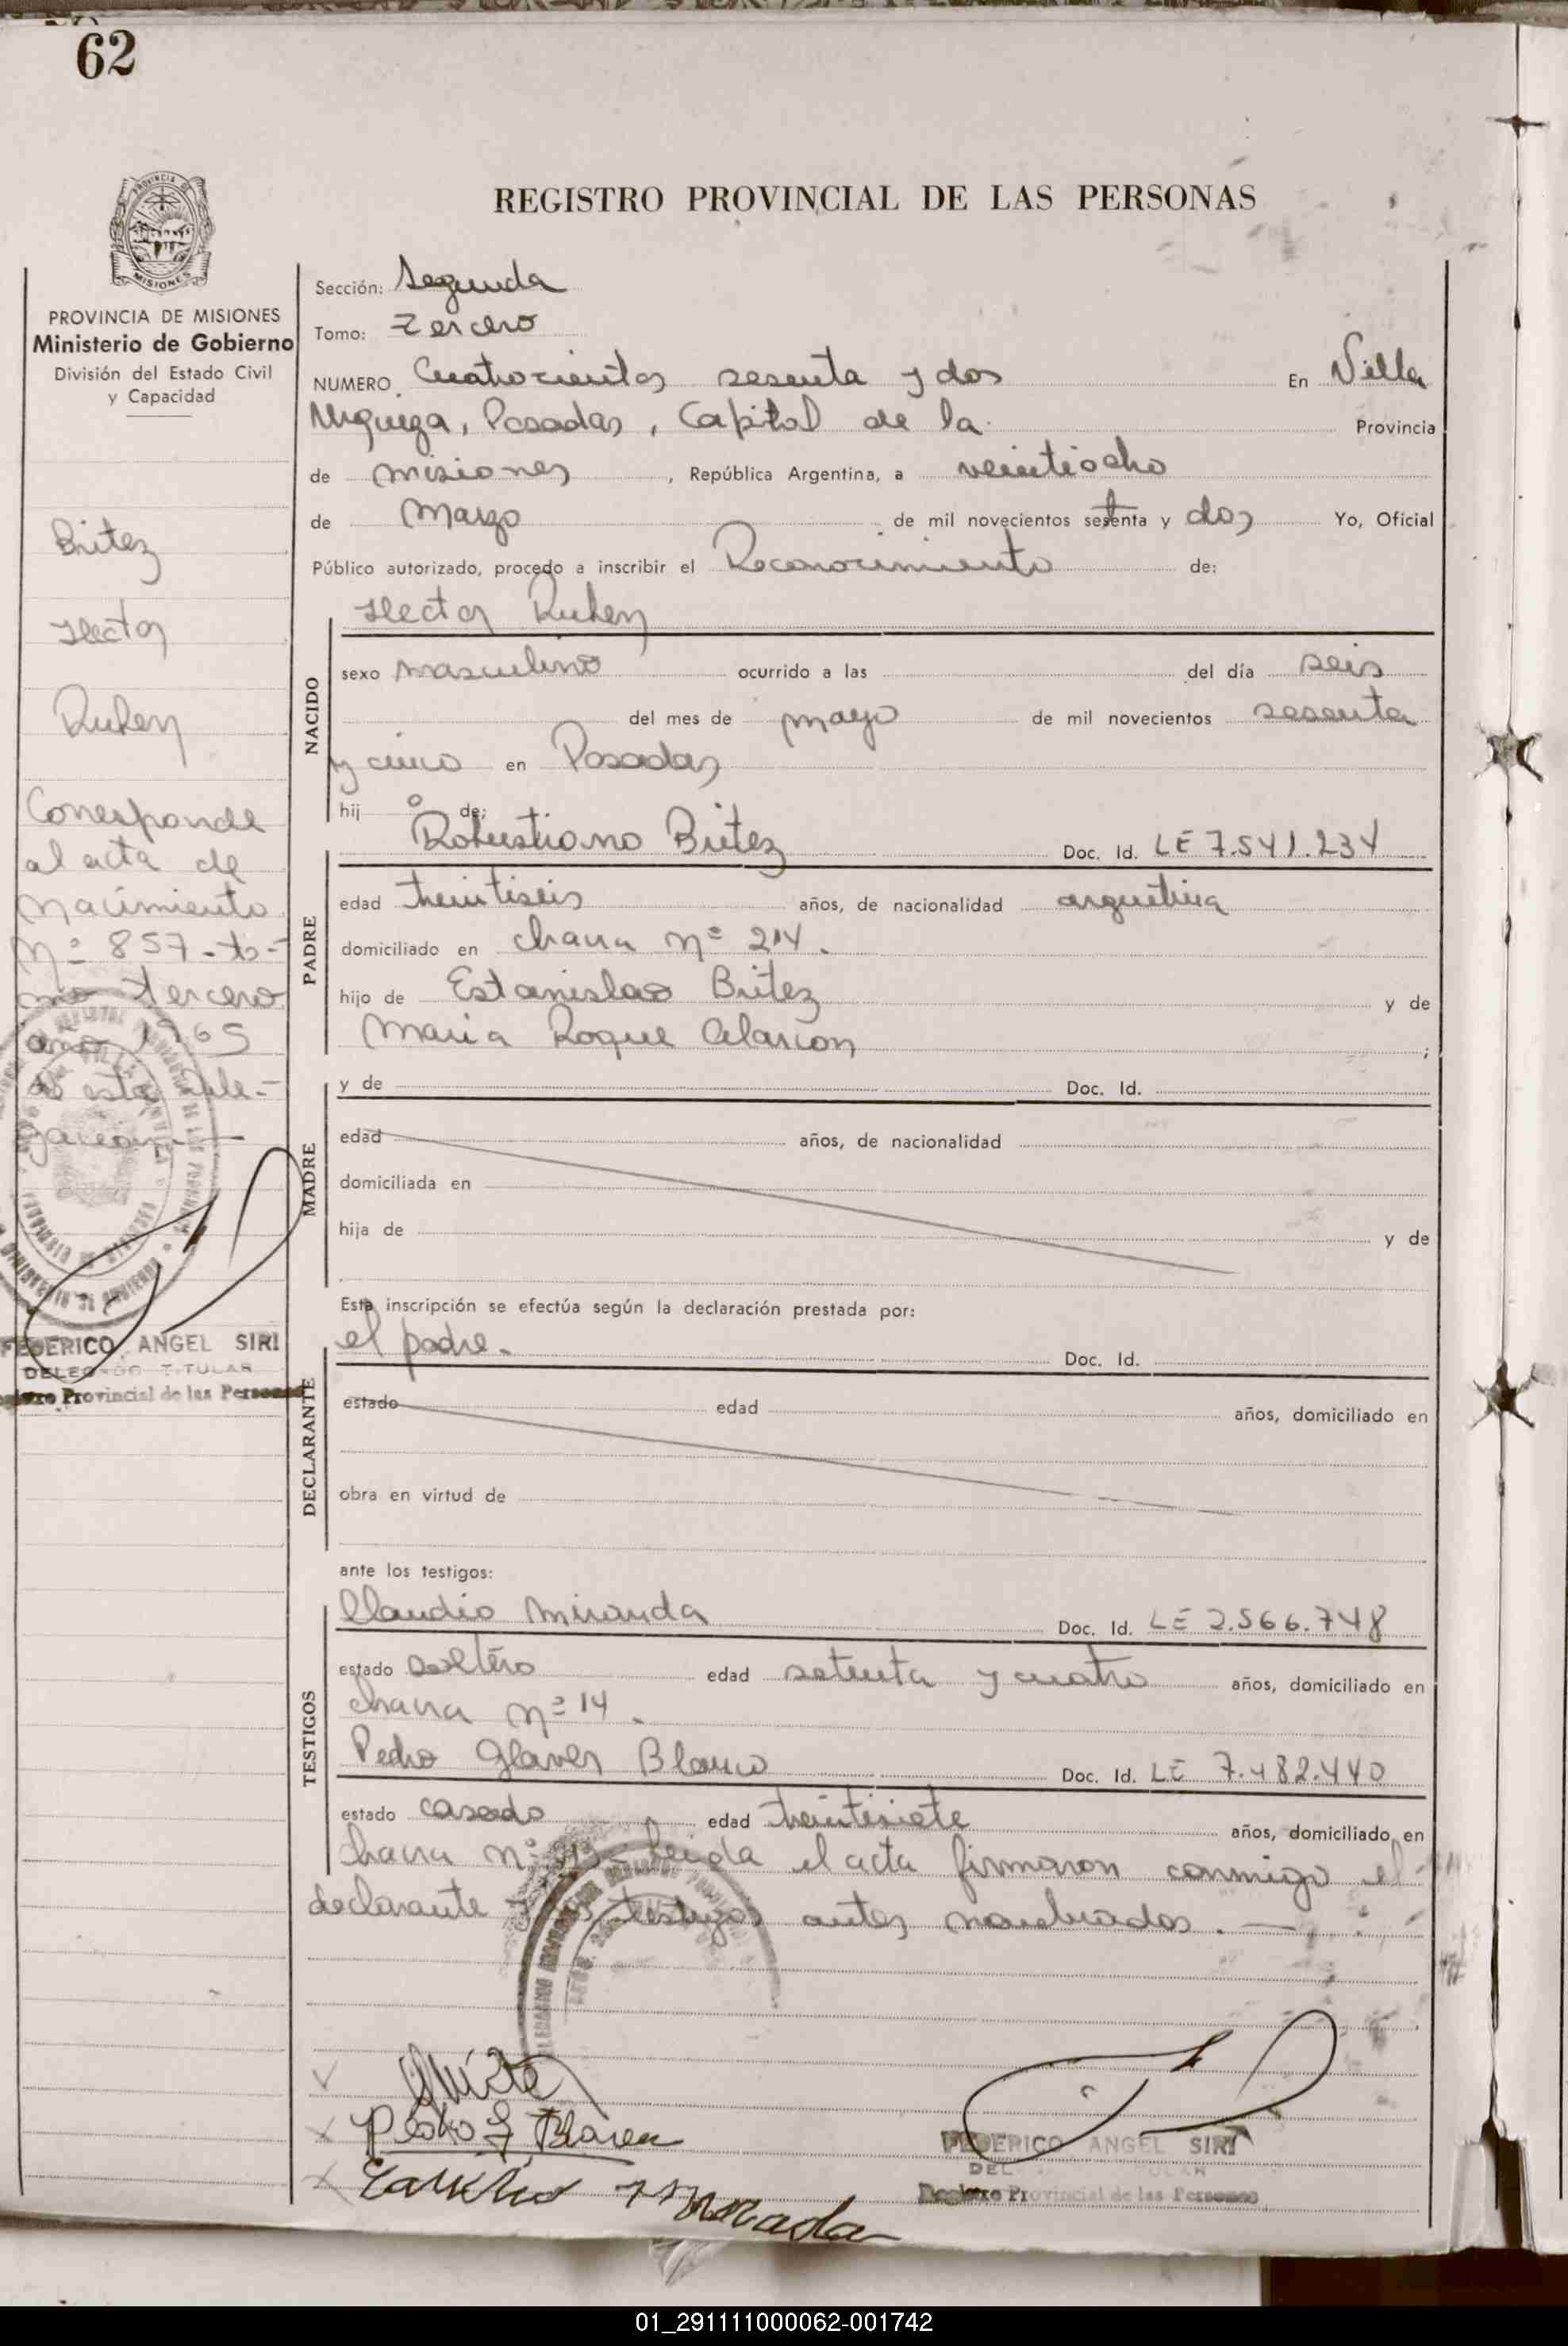 62
REGISTRO PROVINCIAL DE LAS PERSONAS
PROVINCIA DE MISIONES
Ministerio de Gobierno
División del Estado Civil
y Capacidad
Britez
Hector
Ruben
Corresponde
al acta de
nacimiento
Nº 857-to-
mo tercero
año 1965
de esta dele-
gacion
FEDERICO ANGEL SIRI
DELEGADO TITULAR
Registro Provincial de las Personas
Sección: Segunda
Tomo: Tercero
NUMERO Cuatrocientos sesenta y dos En Villa
Urquiza, Posadas, Capital de la Provincia
de misiones, República Argentina, a veintiocho
de Marzo de mil novecientos setenta y dos Yo, Oficial
Público autorizado, procedo a inscribir el Reconocimiento de:
Hector Ruben
NACIDO
sexo masculino ocurrido a las del día seis
del mes de mayo de mil novecientos sesenta
y cinco en Posadas
hijo de:
Robustiano Britez Doc. Id. LE 7.541.234
PADRE
edad treintiseis años, de nacionalidad argentina
domiciliado en chacra nº 214.
hijo de Estanislao Britez y de
Maria Roque Alarcon ;
y de Doc. Id.
MADRE
edad años, de nacionalidad
domiciliada en
hija de y de
Esta inscripción se efectúa según la declaración prestada por:
el padre. Doc. Id.
DECLARANTE
estado edad años, domiciliado en
obra en virtud de
ante los testigos:
Claudio Miranda Doc. Id. LE 2.566.748
TESTIGOS
estado soltero edad setenta y cuatro años, domiciliado en
chacra nº 14.
Pedro Glaver Blanco Doc. Id. LE 7.482.440
estado casado edad treintisiete años, domiciliado en
chacra nº Leida el acta firmaron conmigo el
declarante y los testigos antes nombrados.
Pedro
FEDERICO ANGEL SIRI
Registro Provincial de las Personas
01_291111000062-001742